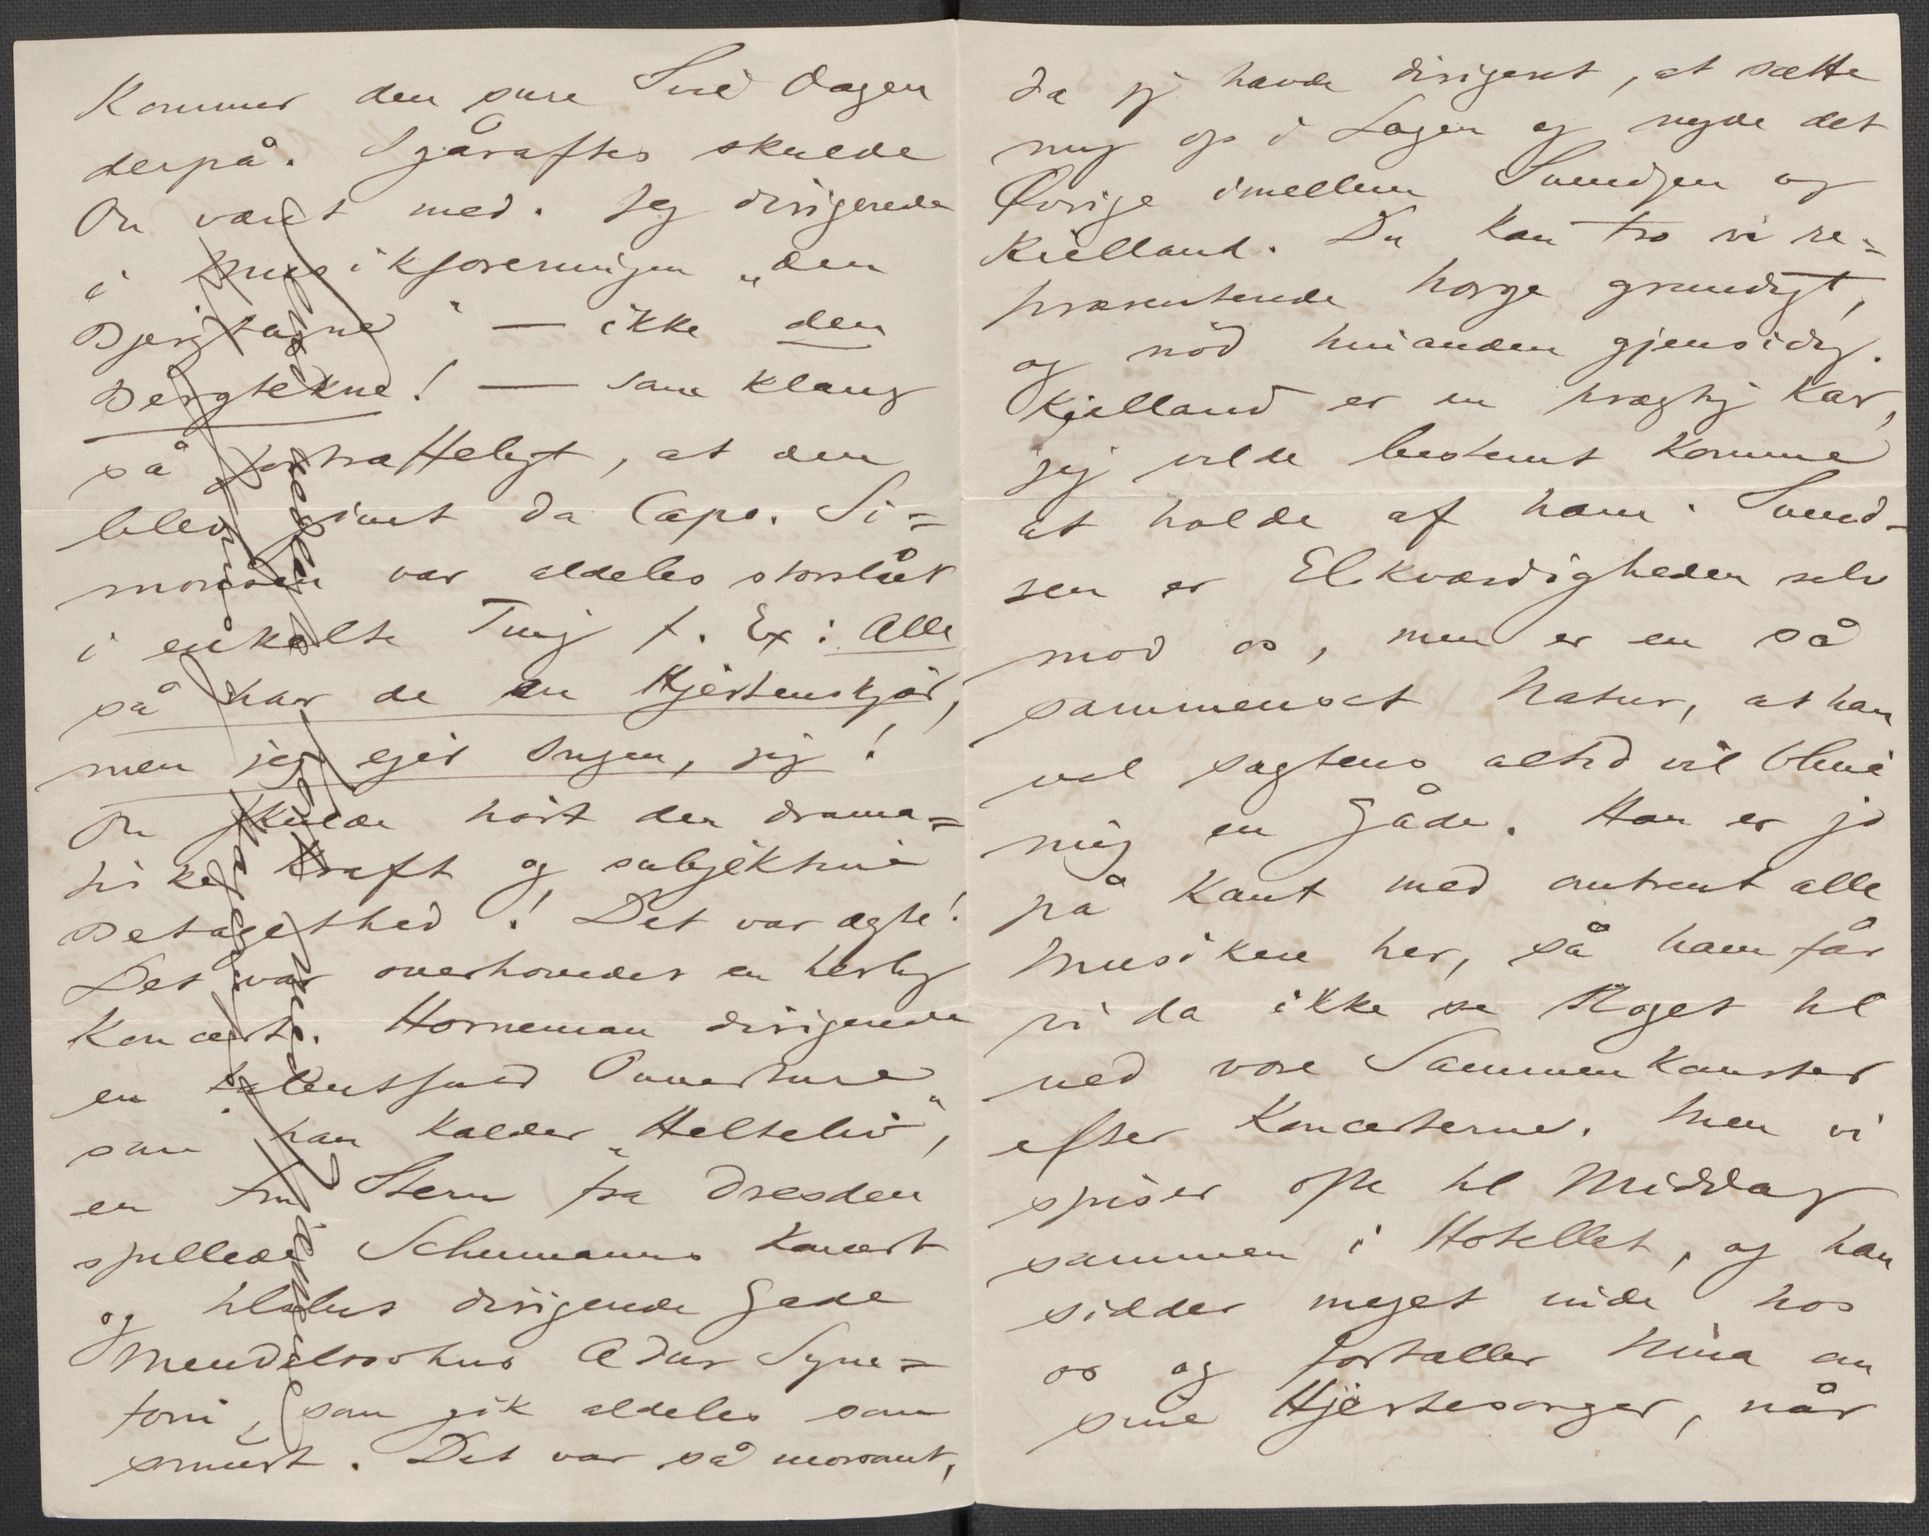 Kommer den sure Svie Dagen
derpå. Igåraftes skulde
Du været med. Jeg dirigerede
i Musikforeningen „den
Bjergtagne" — ikke den
Bergtekne! — som klang
så fortræffeligt, at den
blev givet da Capo. Si=
monsen var aldeles storslået
i enkelte Ting f. Ex: Alle
så har de en Hjertenskjær,
men jeg ejer Ingen, jeg!
Du skulde hørt den drama=
tiske Kraft og subjektive
Betagethed! Det var ægte!
Det var overhovedet en herlig
Koncert. Horneman dirigerede
en talentfuld Ouverture
som han kalder „Helteliv",
en Fru Stern fra Dresden
spillede Schumanns Koncert
og tilslut dirigerede Gade
Mendelssohns A dur Syne=
foni, som gik aldeles som
smurt. Det var så morsomt,
da jeg havde dirigeret, at sætte
mig op i Logen og nyde det
Øvrige imellem Svendsen og
Kielland. Du kan tro vi re=
præsenterede Norge grundigt,
og nød hinanden gjensidig.
Kjelland er en prægtig Kar,
jeg vilde bestemt komme
at holde af ham. Svend=
sen er Elskværdigheden selv
mod os, men er en så
sammensat Natur, at han
vel sagtens altid vil blive
mig en Gåde. Han er jo
på Kant med omtrent alle
Musikere her, så ham får
vi da ikke se Noget til
ved vore Sammenkomster
efter Koncerterne. Men vi
spiser ofte til Middag
sammen i Hotellet, og han
sidder meget inde hos
os og fortæller Nina om
sine Hjertesorger, når